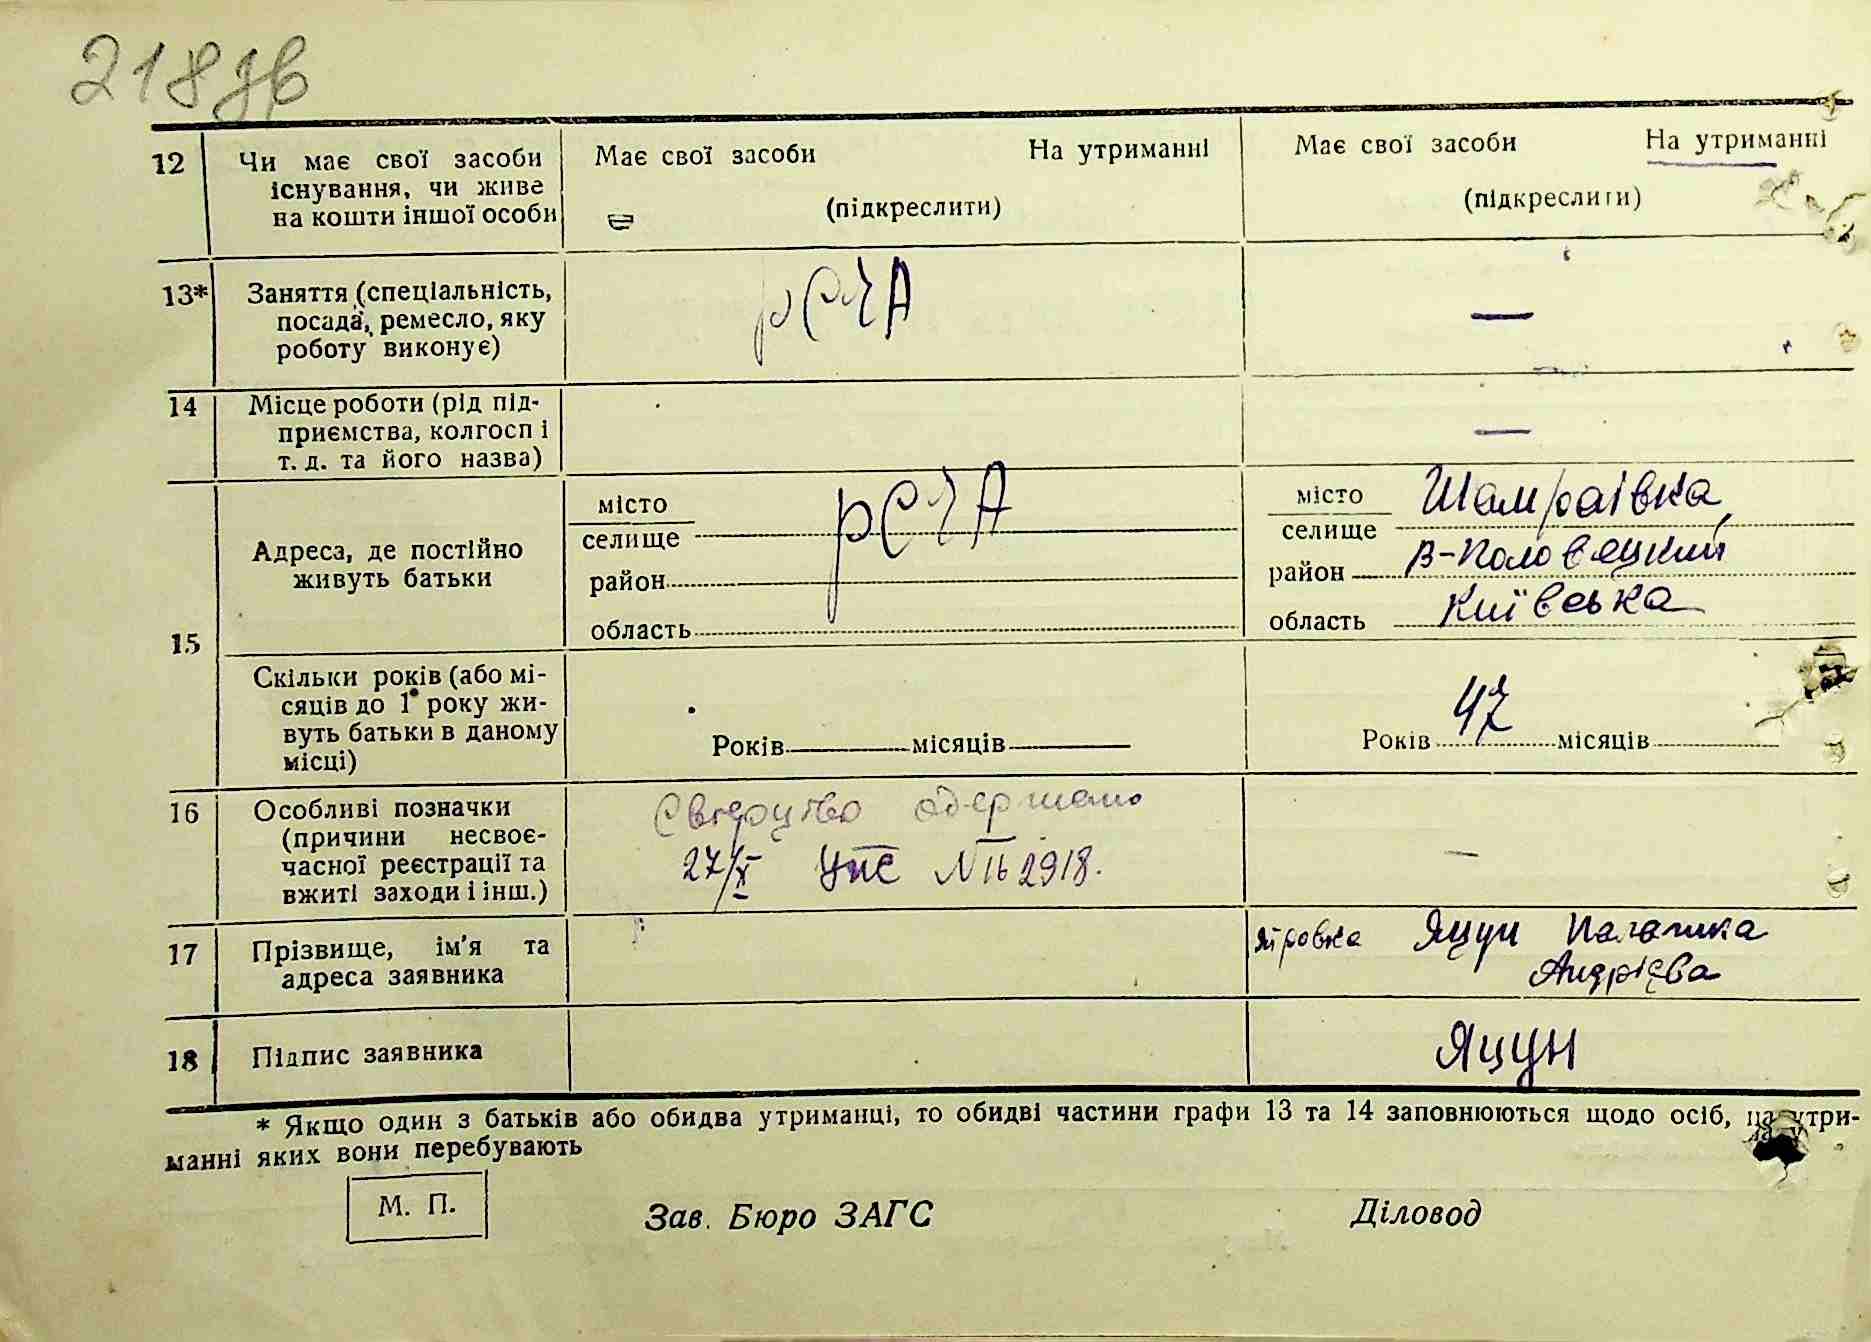 218 зв
12 Чи має свої засоби існування, чи живе на кошти іншої особи
Має свої засоби На утриманні
(підкреслити)
Має свої засоби На утриманні
(підкреслити)
13* Заняття (спеціальність,
посада, ремесло, яку
роботу виконує)
РСЧА
—
14 Місце роботи (рід під-
приємства, колгосп і
т. д. та його назва)
—
15 Адреса, де постійно
живуть батьки
місто
селище
район
область
РСЧА
місто
селище Шамраївка
район В-Половецкий
область Київська
Скільки років (або мі-
сяців до 1 року жи-
вуть батьки в даному
місці)
Років місяців
Років 47 місяців
16 Особливі позначки
(причини несвоє-
часної реєстрації та
вжиті заходи і інш.)
Свідоцтво одержано
27/X УПС № 162918.
—
17 Прізвище, ім'я та
адреса заявника
Яцун Палажка
Андрієва
18 Підпис заявника
Яцун
* Якщо один з батьків або обидва утриманці, то обидві частини графи 13 та 14 заповнюються щодо осіб, на утри-
манні яких вони перебувають
М. П.
Зав. Бюро ЗАГС
Діловод